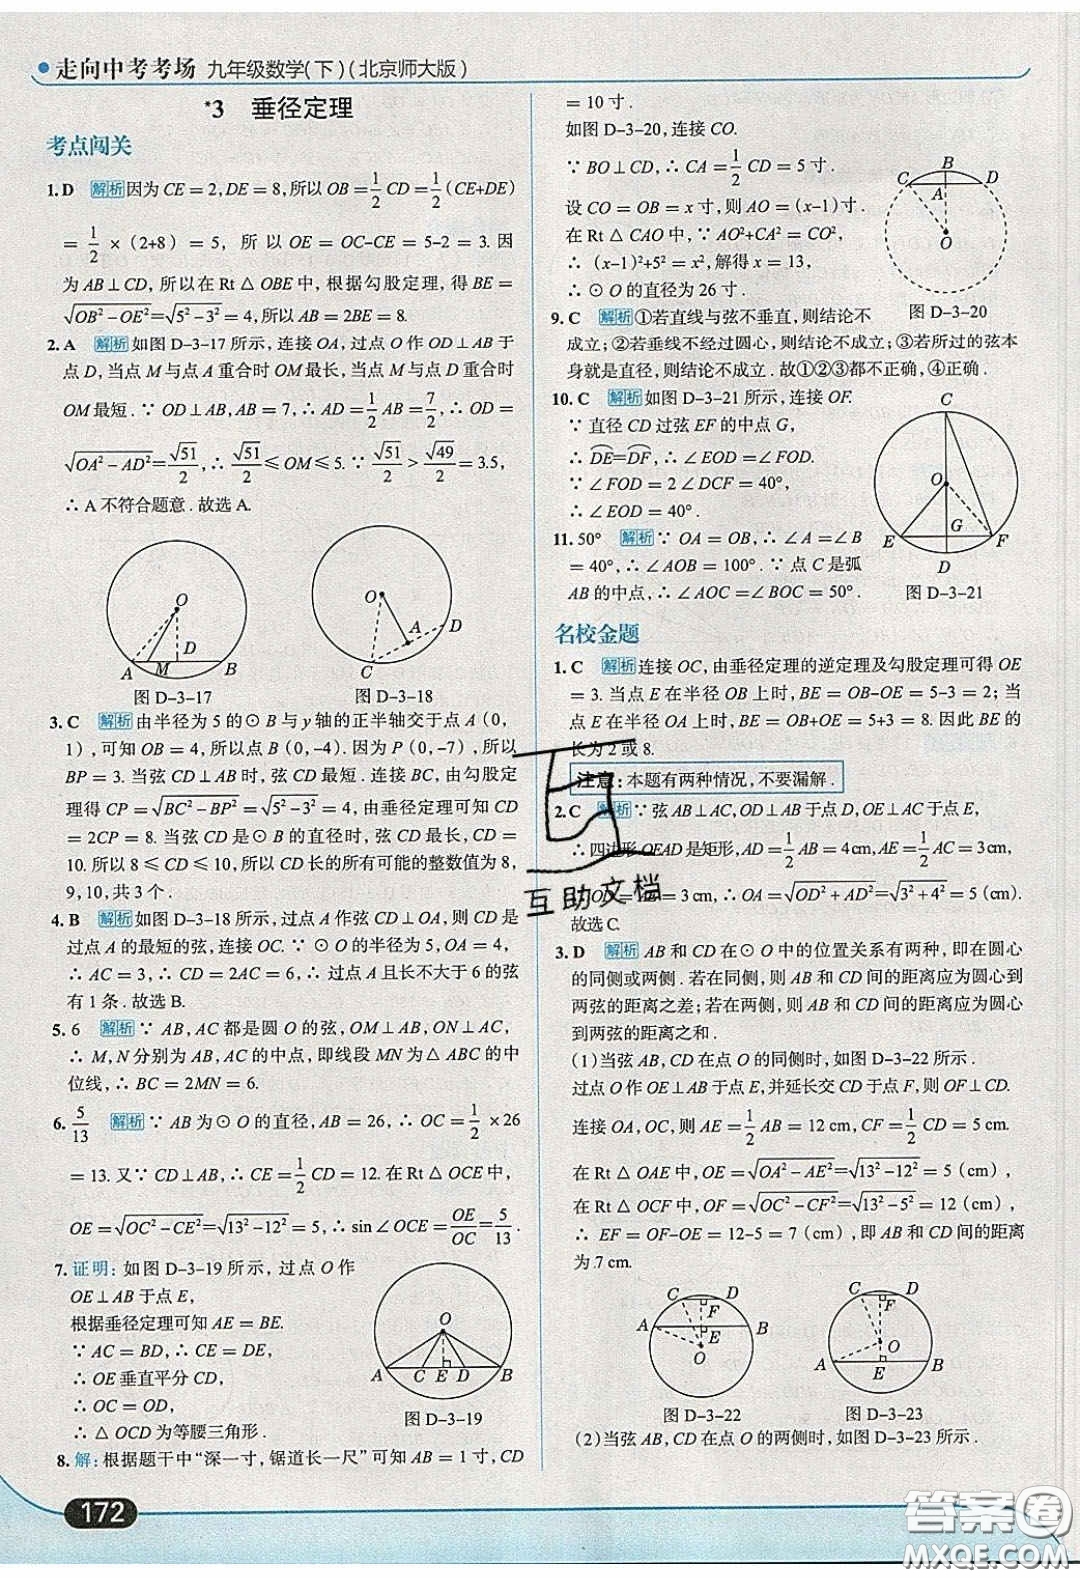 走向中考考场 九年级数学(下)(北京师大版)
*3 垂径定理
考点闯关
1. D 解析 因为 CE = 2, DE = 8, 所以 OB = 1/2 CD = 1/2 (CE+DE)
= 1/2 × (2+8) = 5, 所以 OE = OC-CE = 5-2 = 3. 因
为 AB⊥CD, 所以在 Rt△OBE 中, 根据勾股定理, 得 BE =
√(OB²-OE²) = √(5²-3²) = 4, 所以 AB = 2BE = 8.
2. A 解析 如图 D-3-17 所示, 连接 OA, 过点 O 作 OD⊥AB 于
点 D, 当点 M 与点 A 重合时 OM 最长, 当点 M 与点 D 重合时
OM 最短. ∵ OD⊥AB, AB = 7, ∴ AD = 1/2 AB = 7/2, ∴ OD =
√(OA²-AD²) = √51/2, ∴ √51/2 ≤ OM ≤ 5. ∵ √51/2 > √49/2 = 3.5,
∴ A 不符合题意. 故选 A.
O
A M D B
图 D-3-17
O
A D
C
图 D-3-18
3. C 解析 由半径为 5 的⊙B 与 y 轴的正半轴交于点 A (0,
1), 可知 OB = 4, 所以点 B (0, -4). 因为 P (0, -7), 所以
BP = 3. 当弦 CD⊥AB 时, 弦 CD 最短. 连接 BC, 由勾股定
理得 CP = √(BC²-BP²) = √(5²-3²) = 4, 由垂径定理可知 CD
= 2CP = 8. 当弦 CD 是⊙B 的直径时, 弦 CD 最长, CD =
10. 所以 8 ≤ CD ≤ 10, 所以 CD 长的所有可能的整数值为 8,
9, 10, 共 3 个.
4. B 解析 如图 D-3-18 所示, 过点 A 作弦 CD⊥OA, 则 CD 是
过点 A 的最短的弦, 连接 OC. ∵ ⊙O 的半径为 5, OA = 4,
∴ AC = 3, ∴ CD = 2AC = 6, ∴ 过点 A 且长不大于 6 的弦
有 1 条. 故选 B.
5. 6 解析 ∵ AB, AC 都是圆 O 的弦, OM⊥AB, ON⊥AC,
∴ M, N 分别为 AB, AC 的中点, 即线段 MN 为△ABC 的中
位线, ∴ BC = 2MN = 6.
6. 5/13 解析 ∵ AB 为⊙O 的直径, AB = 26, ∴ OC = 1/2 × 26
= 13. 又∵ CD⊥AB, ∴ CE = 1/2 CD = 12. 在 Rt△OCE 中,
OE = √(OC²-CE²) = √(13²-12²) = 5, ∴ sin∠OCE = OE/OC = 5/13.
7. 证明: 如图 D-3-19 所示, 过点 O 作
OE⊥AB 于点 E,
根据垂径定理可知 AE = BE.
∵ AC = BD, ∴ CE = DE,
∴ OE 垂直平分 CD,
∴ OC = OD,
∴ △OCD 为等腰三角形.
O
A C E D B
图 D-3-19
8. 解: 根据题干中“深一寸, 锯道长一尺”可知 AB = 1 寸, CD
172
= 10 寸.
如图 D-3-20, 连接 CO.
∵ BO⊥CD, ∴ CA = 1/2 CD = 5 寸.
设 CO = OB = x 寸, 则 AO = (x-1) 寸.
在 Rt△CAO 中, ∵ AO²+CA² = CO²,
∴ (x-1)²+5² = x², 解得 x = 13,
∴ ⊙O 的直径为 26 寸.
B
C A D
O
图 D-3-20
9. C 解析 ①若直线与弦不垂直, 则结论不
成立; ②若垂线不经过圆心, 则结论不成立; ③若所过的弦本
身就是直径, 则结论不成立. 故①②③都不正确, ④正确.
10. C 解析 如图 D-3-21 所示, 连接 OF.
∵ 直径 CD 过弦 EF 的中点 G,
∴ DE = DF, ∴ ∠EOD = ∠FOD.
∵ ∠FOD = 2∠DCF = 40°,
∴ ∠EOD = 40°.
C
O
E G F
D
图 D-3-21
11. 50° 解析 ∵ OA = OB, ∴ ∠A = ∠B
= 40°, ∴ ∠AOB = 100°. ∵ 点 C 是弧
AB 的中点, ∴ ∠AOC = ∠BOC = 50°.
名校金题
1. C 解析 连接 OC, 由垂径定理的逆定理及勾股定理可得 OE
= 3. 当点 E 在半径 OB 上时, BE = OB-OE = 5-3 = 2; 当
点 E 在半径 OA 上时, BE = OB+OE = 5+3 = 8. 因此 BE 的
长为 2 或 8.
注意: 本题有两种情况, 不要漏解.
2. C 解析 ∵ 弦 AB⊥AC, OD⊥AB 于点 D, OE⊥AC 于点 E,
∴ 四边形 OEAD 是矩形, AD = 1/2 AB = 4 cm, AE = 1/2 AC = 3 cm,
OD = AE = 3 cm, ∴ OA = √(OD²+AD²) = √(3²+4²) = 5 (cm).
故选 C.
3. D 解析 AB 和 CD 在⊙O 中的位置关系有两种, 即在圆心
的同侧或两侧. 若在同侧, 则 AB 和 CD 间的距离应为圆心到
两弦的距离之差; 若在两侧, 则 AB 和 CD 间的距离应为圆心
到两弦的距离之和.
(1)当弦 AB, CD 在点 O 的同侧时, 如图 D-3-22 所示.
过点 O 作 OE⊥AB 于点 E, 并延长交 CD 于点 F, 则 OF⊥CD.
连接 OA, OC, 则 AE = 1/2 AB = 12 cm, CF = 1/2 CD = 5 cm.
在 Rt△OAE 中, OE = √(OA²-AE²) = √(13²-12²) = 5 (cm),
在 Rt△OCF 中, OF = √(OC²-CF²) = √(13²-5²) = 12 (cm),
∴ EF = OF-OE = 12-5 = 7 (cm), 即 AB 和 CD 间的距离
为 7 cm.
C F D
A E B
O
图 D-3-22
C F D
O
A E B
图 D-3-23
(2)当弦 AB, CD 在点 O 的两侧时, 如图 D-3-23 所示.
互助文档
答案圈
MXQE.COM